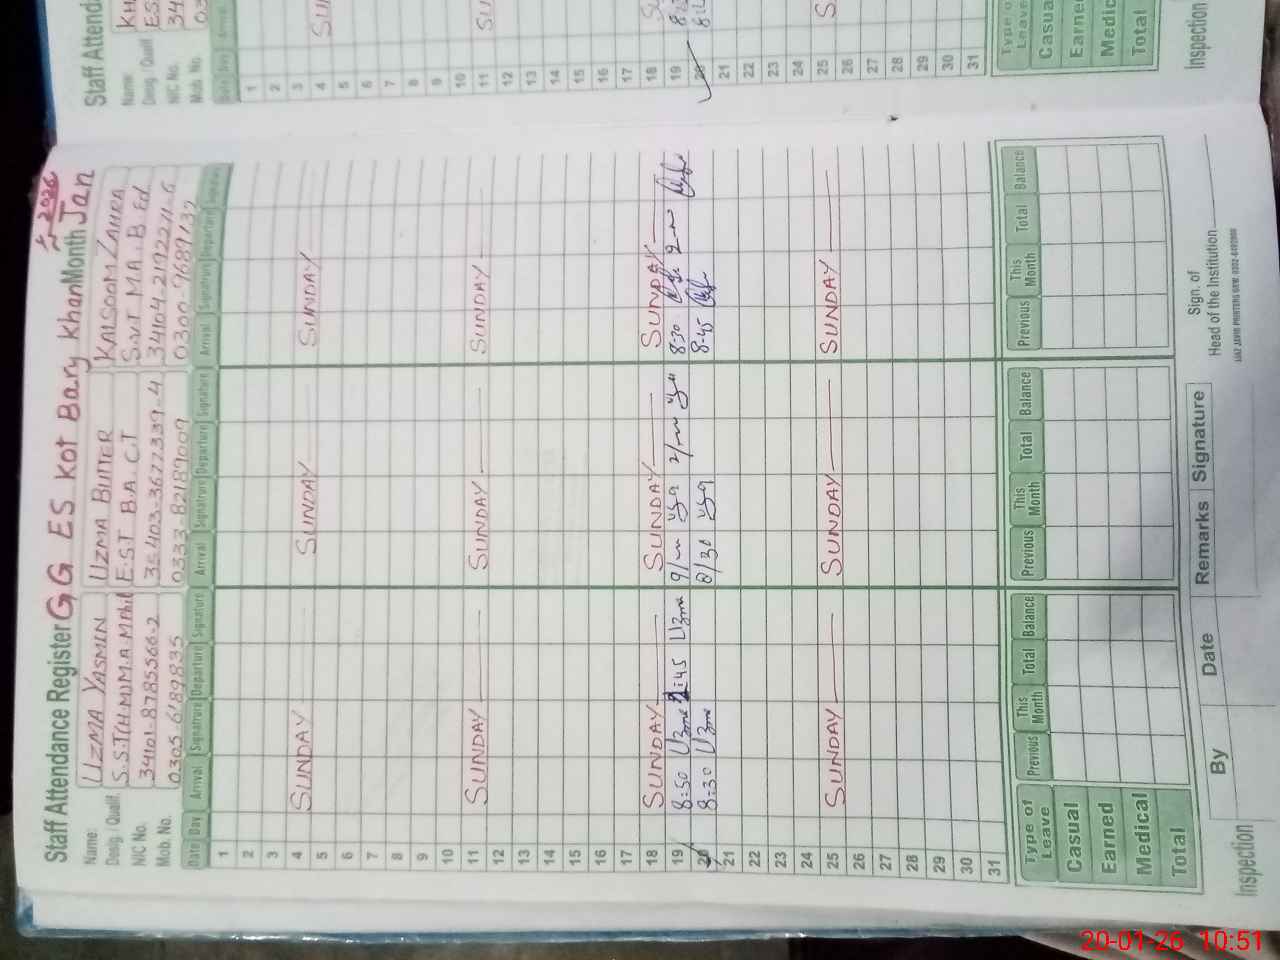 Staff Attendance Register G.G. ES Kot Bary Khan Month Jan
2026
Name: UZMA YASMIN UZMA BUTTER KALSOOM ZAHRA
Desig. / Qualif. S.S.T(H.M) M.A. MPhil E.S.T B.A. C.T S.V.T M.A. B.Ed
NIC No. 34101-8785566-2 35403-3677339-4 34104-2192271-6
Mob. No. 0305-6189835 0333-82189009 0300-9689137
Date Day Arrival Signature Departure Signature Arrival Signature Departure Signature Arrival Signature Departure Signature
1
2
3
4 SUNDAY SUNDAY SUNDAY
5
6
7
8
9
10
11 SUNDAY SUNDAY SUNDAY
12
13
14
15
16
17
18 SUNDAY SUNDAY SUNDAY
19 8:50 Uzma 2:45 Uzma 8:30
20 8:30 Uzma 8/30 8:45
21
22
23
24
25 SUNDAY SUNDAY SUNDAY
26
27
28
29
30
31
Type of Leave Previous This Month Total Balance Previous This Month Total Balance Previous This Month Total Balance
Casual
Earned
Medical
Total
Inspection By Date Remarks Signature
Sign. of
Head of the Institution
Staff Attend
Name:
Desig. / Qualif
NIC No.
Mob. No.
1
2
3
4 SU
5
6
7
8
9
10
11 SU
12
13
14
15
16
17
18
19
20
21
22
23
24
25 S
26
27
28
29
30
31
Type of Leave
Casual
Earned
Medic
Total
Inspection
20-01-26 10:51